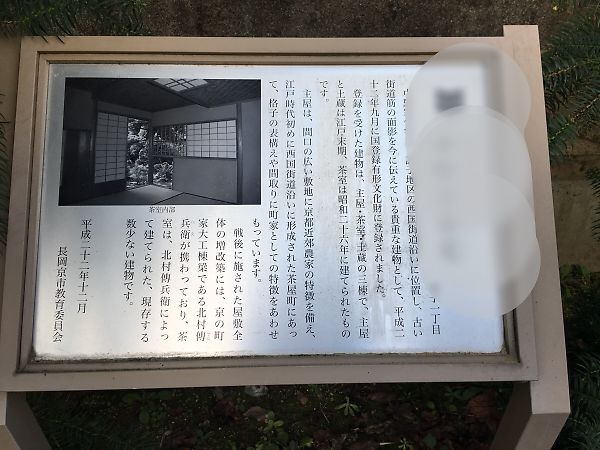 二丁目
地区の西国街道沿いに位置し、古い
街道筋の面影を今に伝えている貴重な建物として、平成二
十二年九月に国登録有形文化財に登録されました。
登録を受けた建物は、主屋・茶室・土蔵の三棟で、主屋
と土蔵は江戸末期、茶室は昭和二十六年に建てられたもの
です。
主屋は、間口の広い敷地に京都近郊農家の特徴を備え、
江戸時代初めに西国街道沿いに形成された茶屋町にあっ
て、格子の表構えや間取りに町家としての特徴をあわせ
もっています。
戦後に施された屋敷全
体の増改築には、京の町
家大工棟梁である北村傳
兵衛が携わっており、茶
室は、北村傳兵衛によっ
て建てられた、現存する
数少ない建物です。
平成二十二年十二月
長岡京市教育委員会
茶室内部